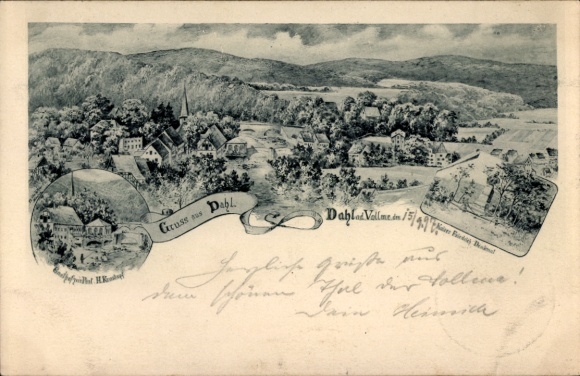 Gruss aus Dahl.
Dahl a.d. Volme, den 15/
Kaiser Friedrich Denkmal
Gasthof zur Post H.
Herzliche Grüße aus
dem schönen Thal der Vollme!
Dein Heinrich